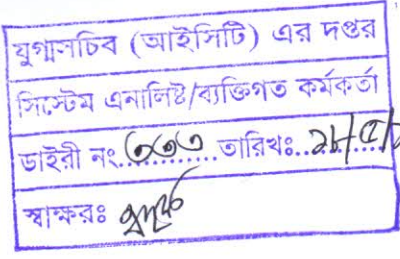 যুগ্মসচিব (আইসিটি) এর দপ্তর
সিস্টেম এনালিষ্ট/ব্যক্তিগত কর্মকর্তা
ডাইরী নং..৩৩৩.........তারিখঃ..১৮/৫/
স্বাক্ষরঃ